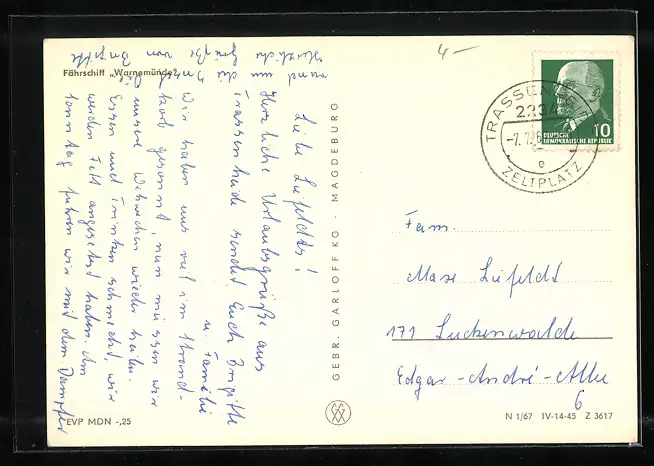 4 –
Fährschiff „Warnemünde"
Liebe Liefeldts!
Herzliche Urlaubsgrüße aus
Trassenheide sendet Euch Brigitte
u. Familie
Wir haben uns viel im Strand-
korb gesonnt, nun müssen wir
unsere Wehwehen wieder heilen.
Essen und Trinken schmeckt, wir
werden Fett angesetzt haben. Am
Sonntag fuhren wir mit dem Dampfer
rund um die
Herzliche Grüße
von Brigitte
GEBR. GARLOFF KG · MAGDEBURG
TRASSENHEIDE
2234
-7.7.
e
ZELTPLATZ
10
DEUTSCHE
DEMOKRATISCHE REPUBLIK
Fam.
Max Liefeldt
171 Luckenwalde
Edgar-André-Allee
6
EVP MDN -,25
N 1/67 IV-14-45 Z 3617